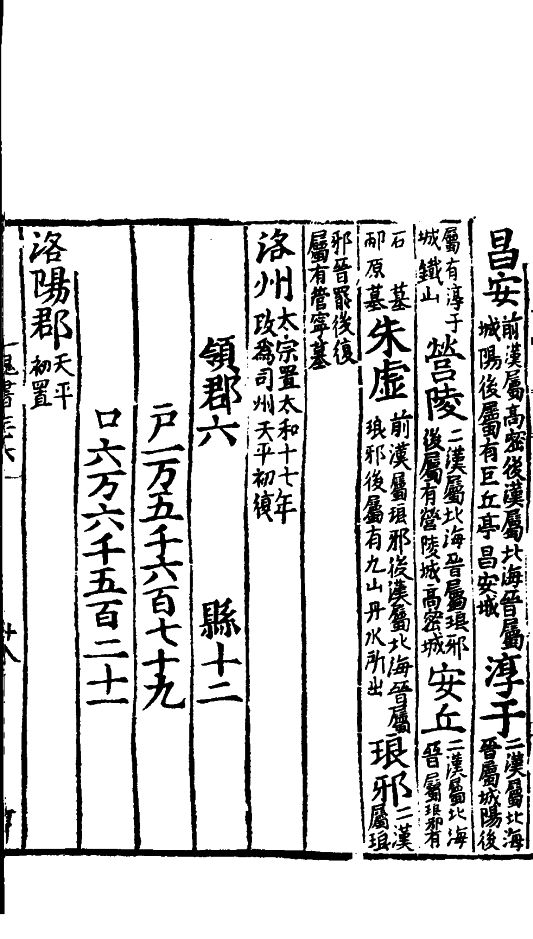 昌安前漢屬高密後漢屬北海晉屬城陽後屬有巨丘亭昌安城淳于二漢屬北海晉屬城陽後
屬有淳于城鐵山營陵二漢屬北海晉屬琅邪後屬有營陵城高密城安丘二漢屬北海晉屬琅邪有
石墓邴原墓朱虚前漢屬琅邪後漢屬北海晉屬琅邪後屬有九山丹水所出琅邪二漢屬琅
邪晉罷後復屬有管寧墓
洛州太宗置太和十七年改爲司州天平初復
領郡六 縣十二
戸一万五千六百七十九
口六万六千五百二十一
洛陽郡天平初置